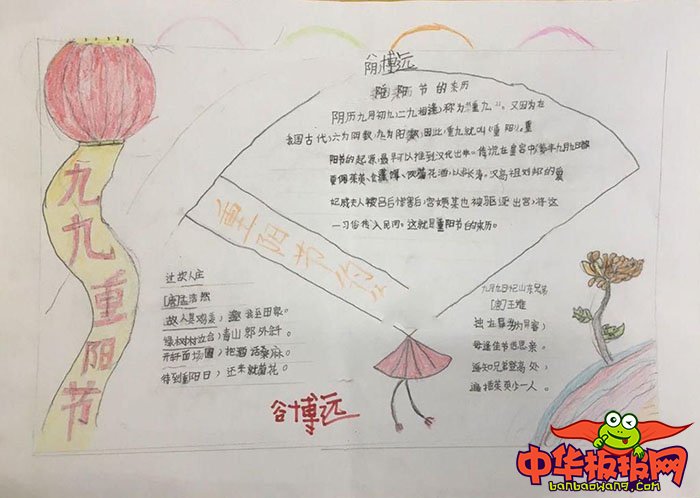 九九重阳节
谷博远
重阳节的来历
阴历九月初九,二九相逢,称为"重九",又因为在
我国古代,六为阴数,九为阳数,因此,重九就叫"重阳"。重
阳节的起源,最早可以推到汉代出年。传说在皇宫中,每年九月九日都
要佩茱英,食蓬饵,饮菊花酒,以求长寿。汉高祖刘邦的爱
妃戚夫人被吕后惨害后,宫娥某也被驱逐出宫,将这
一习俗传入民间。这就是重阳节的来历。
重阳节
过故人庄
[唐]孟浩然
故人具鸡麦,邀我至田家。
绿树村边合,青山郭外斜。
开轩面场圃,把酒话桑麻。
待到重阳日,还来就菊花。
谷博远
九月九日忆山东兄弟
[唐]王维
独在异乡为异客,
每逢佳节倍思亲。
遥知兄弟登高处,
遍插茱英少一人。
中华板报网
banbaowang.com